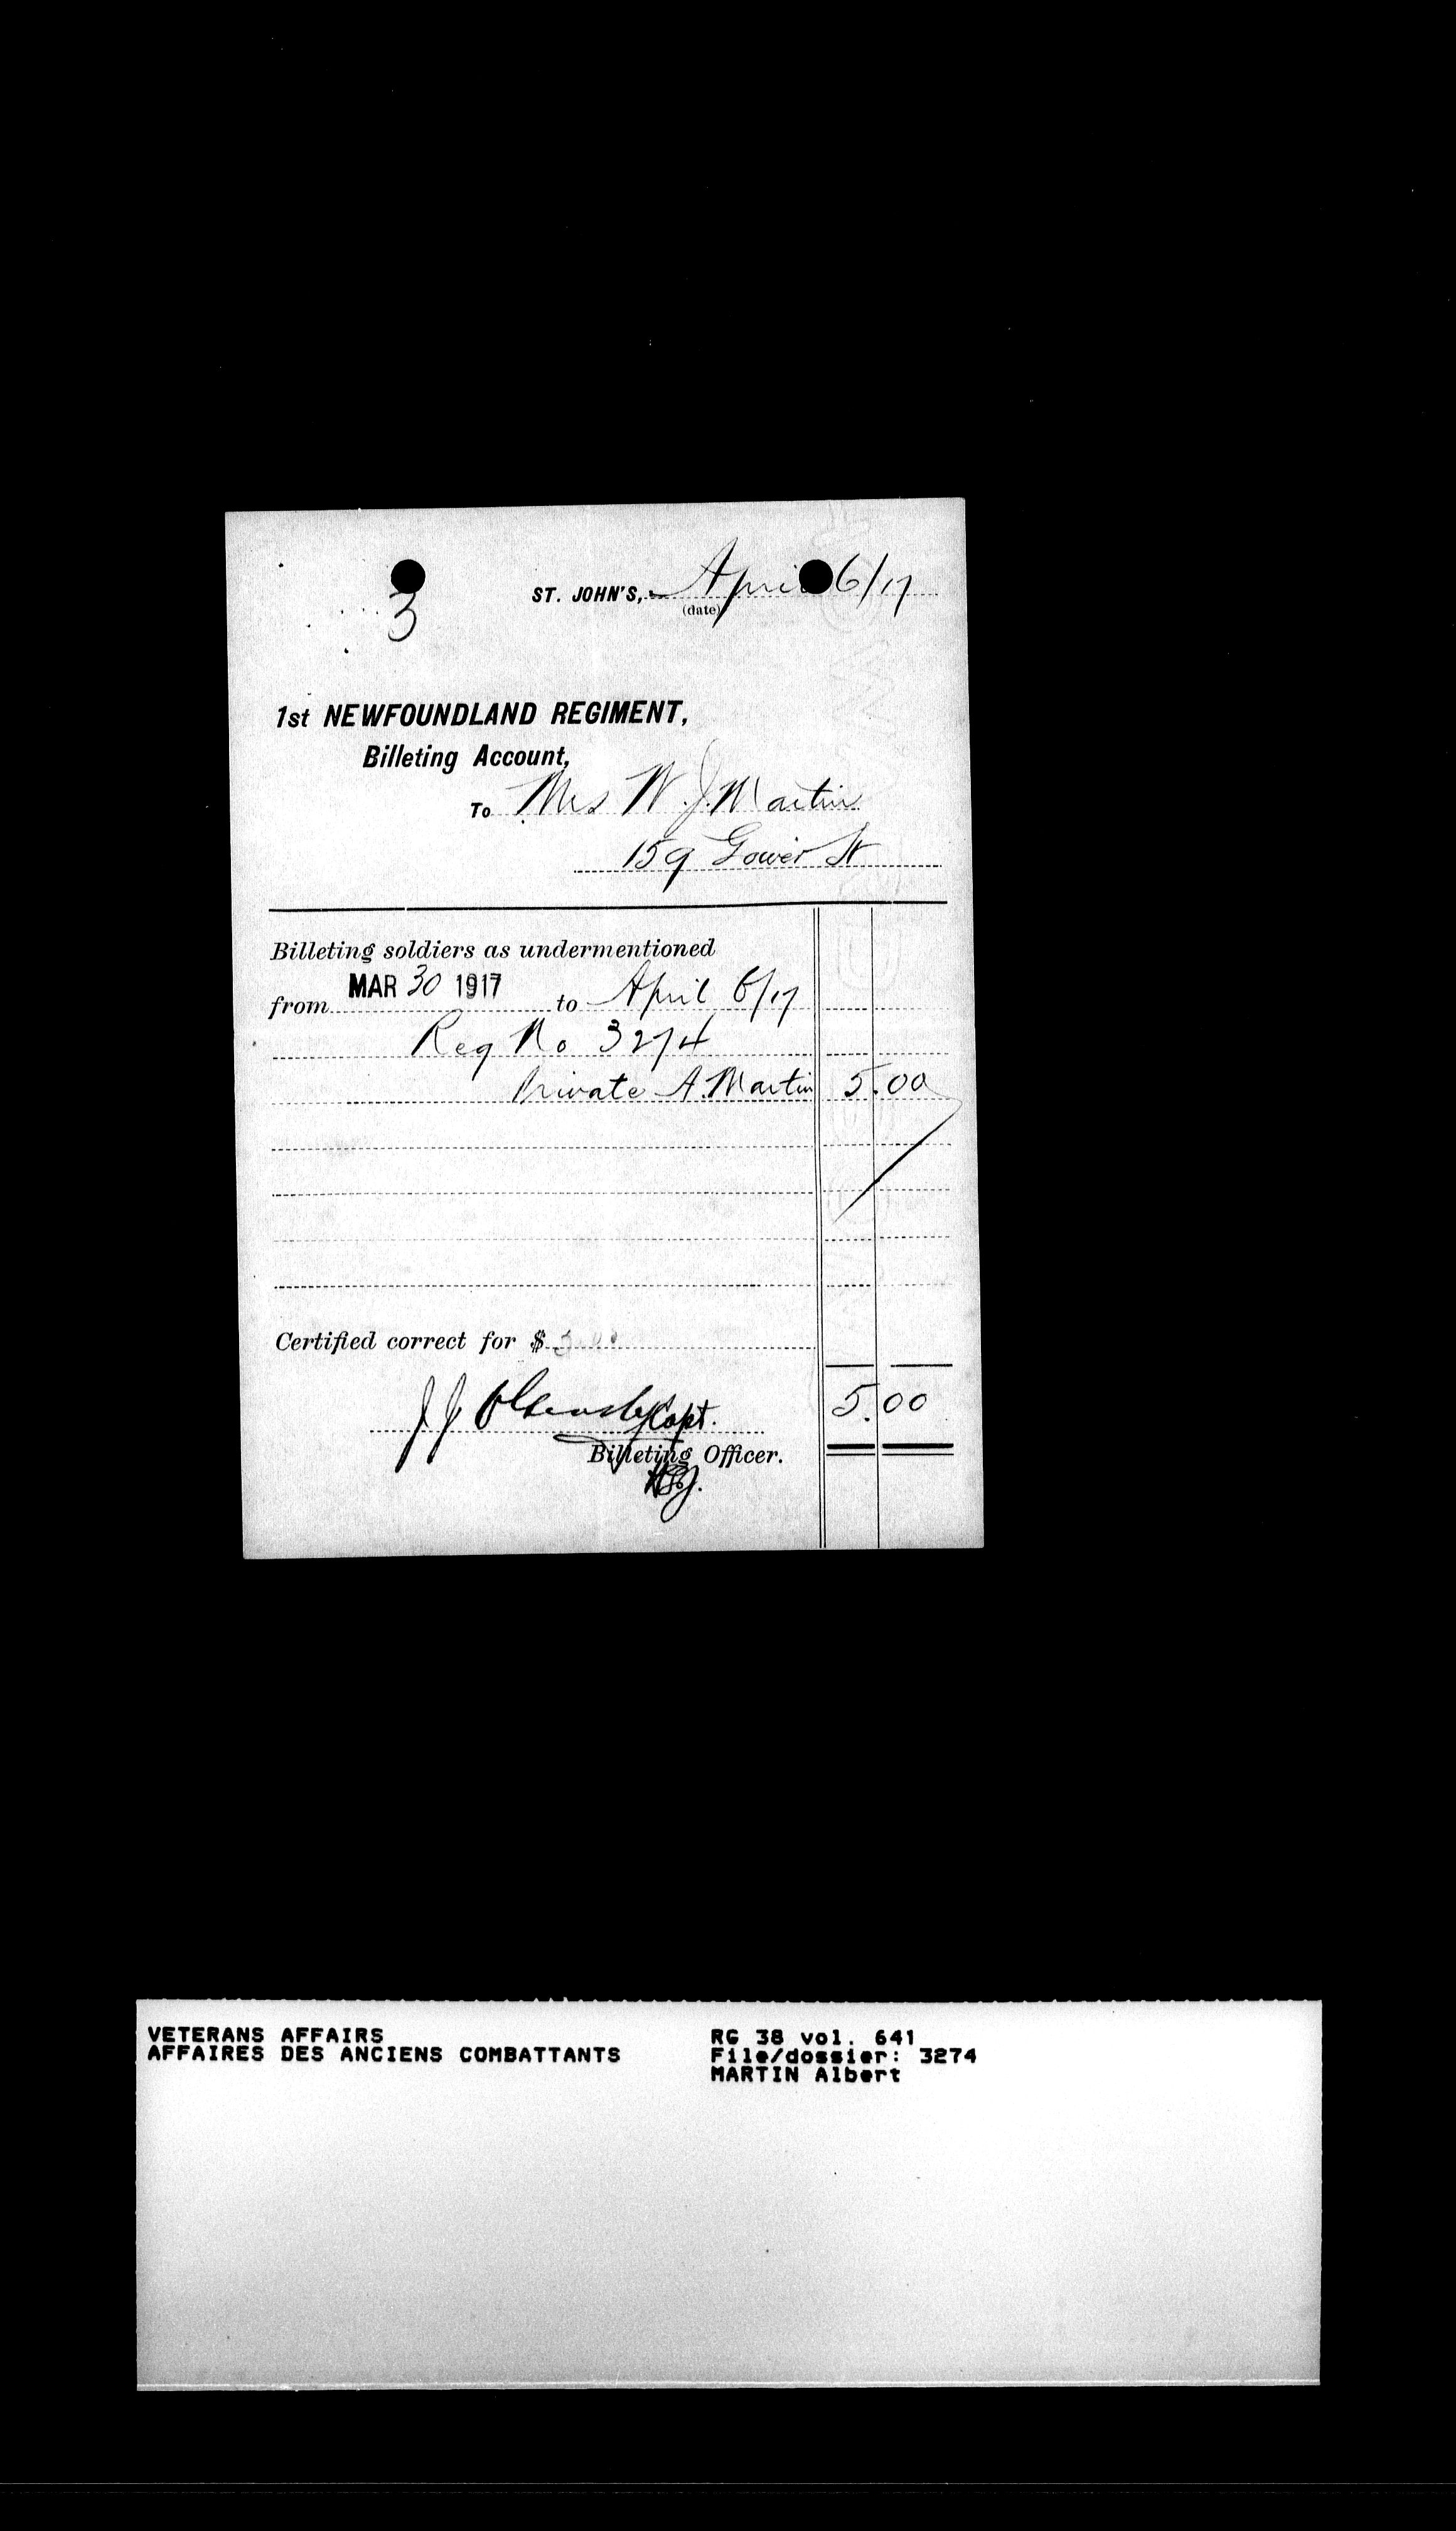 3
ST. JOHN'S, April 6/17
(date)
1st NEWFOUNDLAND REGIMENT,
Billeting Account,
To Mrs W. J. Martin
159 Gower St
Billeting soldiers as undermentioned
from MAR 30 1917 to April 6/17
Reg No 3274
Private A. Martin 5.00
Certified correct for $
5.00
J J Capt.
Billeting Officer.
VETERANS AFFAIRS
AFFAIRES DES ANCIENS COMBATTANTS
RG 38 vol. 641
File/dossier: 3274
MARTIN Albert